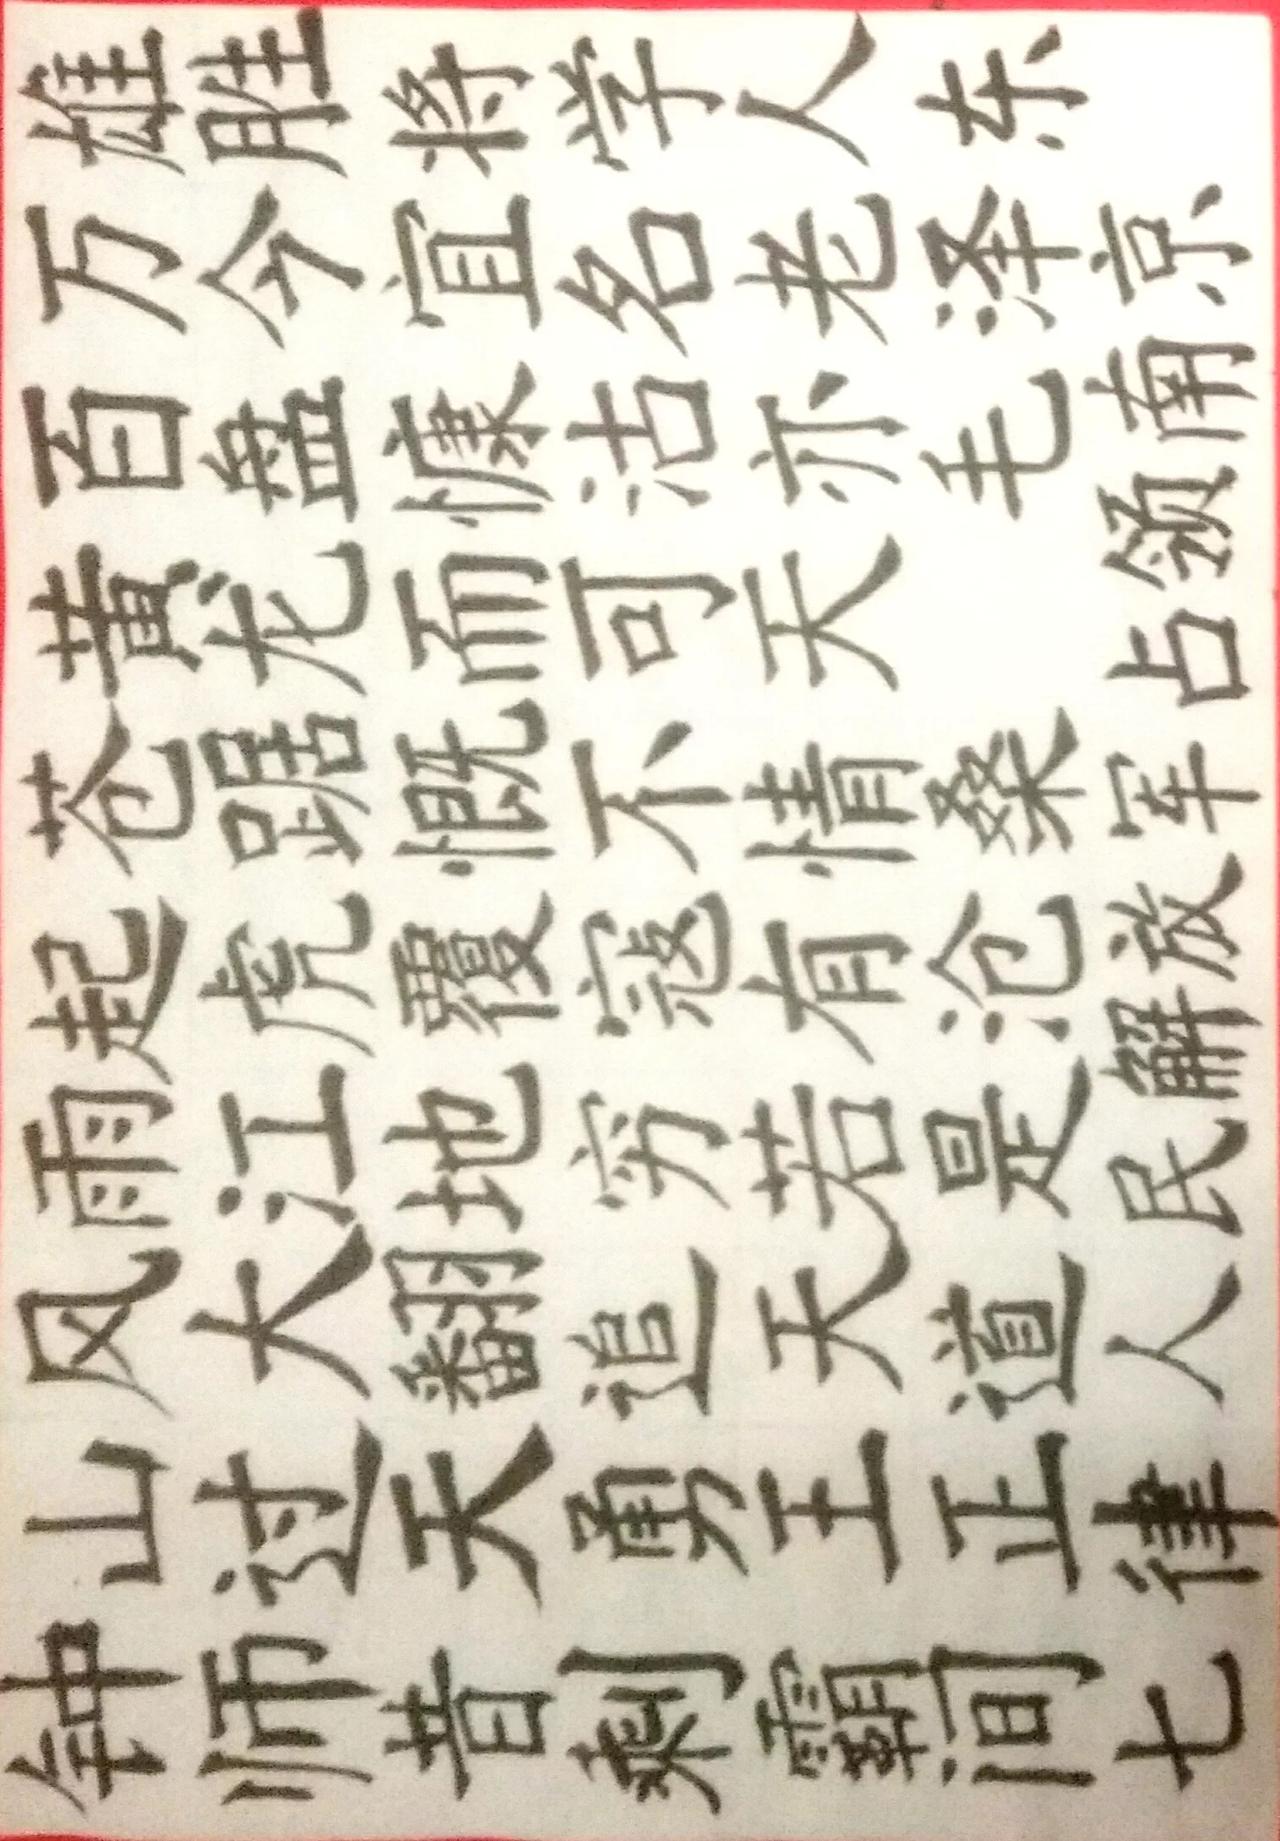 钟山风雨起苍黄百万雄
师过大江虎踞龙盘今胜
昔天翻地覆慨而慷宜将
剩勇追穷寇不可沽名学
霸王天若有情天亦老人
间正道是沧桑 毛泽东
七律人民解放军占领南京